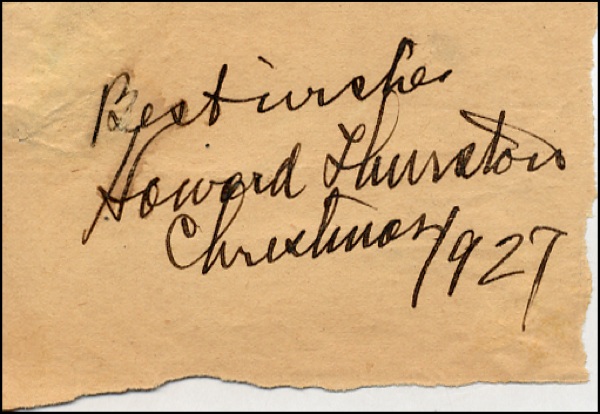 Best wishes
Howard Thurston
Christmas 1927